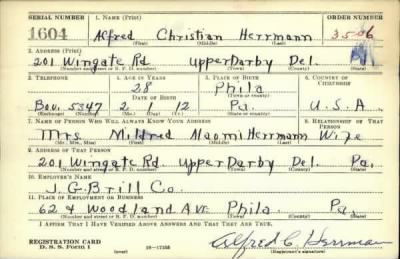 SERIAL NUMBER 1. NAME (Print) ORDER NUMBER
1604 Alfred Christian Herrmann 3506
(First) (Middle) (Last)
2. ADDRESS (Print)
201 Wingate Rd. Upper Darby Del. Pa
(Number and street or R. F. D. number) (Town) (County) (State)
3. TELEPHONE 4. AGE IN YEARS 5. PLACE OF BIRTH 6. COUNTRY OF CITIZENSHIP
28 Phila
DATE OF BIRTH (Town or county)
Bou. 5347 2 1 12 Pa. U.S.A.
(Exchange) (Number) (Mo.) (Day) (Yr.) (State or country)
7. NAME OF PERSON WHO WILL ALWAYS KNOW YOUR ADDRESS 8. RELATIONSHIP OF THAT PERSON
Mrs. Mildred Naomi Herrmann Wife
(Mr., Mrs., Miss) (First) (Middle) (Last)
9. ADDRESS OF THAT PERSON
201 Wingate Rd. Upper Darby Del. Pa.
(Number and street or R. F. D. number) (Town) (County) (State)
10. EMPLOYER'S NAME
J.G. Brill Co.
11. PLACE OF EMPLOYMENT OR BUSINESS
62 & Woodland Ave. Phila. Pa.
(Number and street or R. F. D. number) (Town) (County) (State)
I AFFIRM THAT I HAVE VERIFIED ABOVE ANSWERS AND THAT THEY ARE TRUE.
REGISTRATION CARD
D. S. S. Form 1 (over) 16-17105 Alfred C. Herrmann
(Registrant's signature)